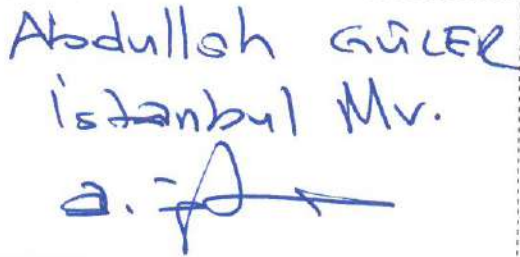 Abdullah GÜLER
İstanbul Mv.
a.